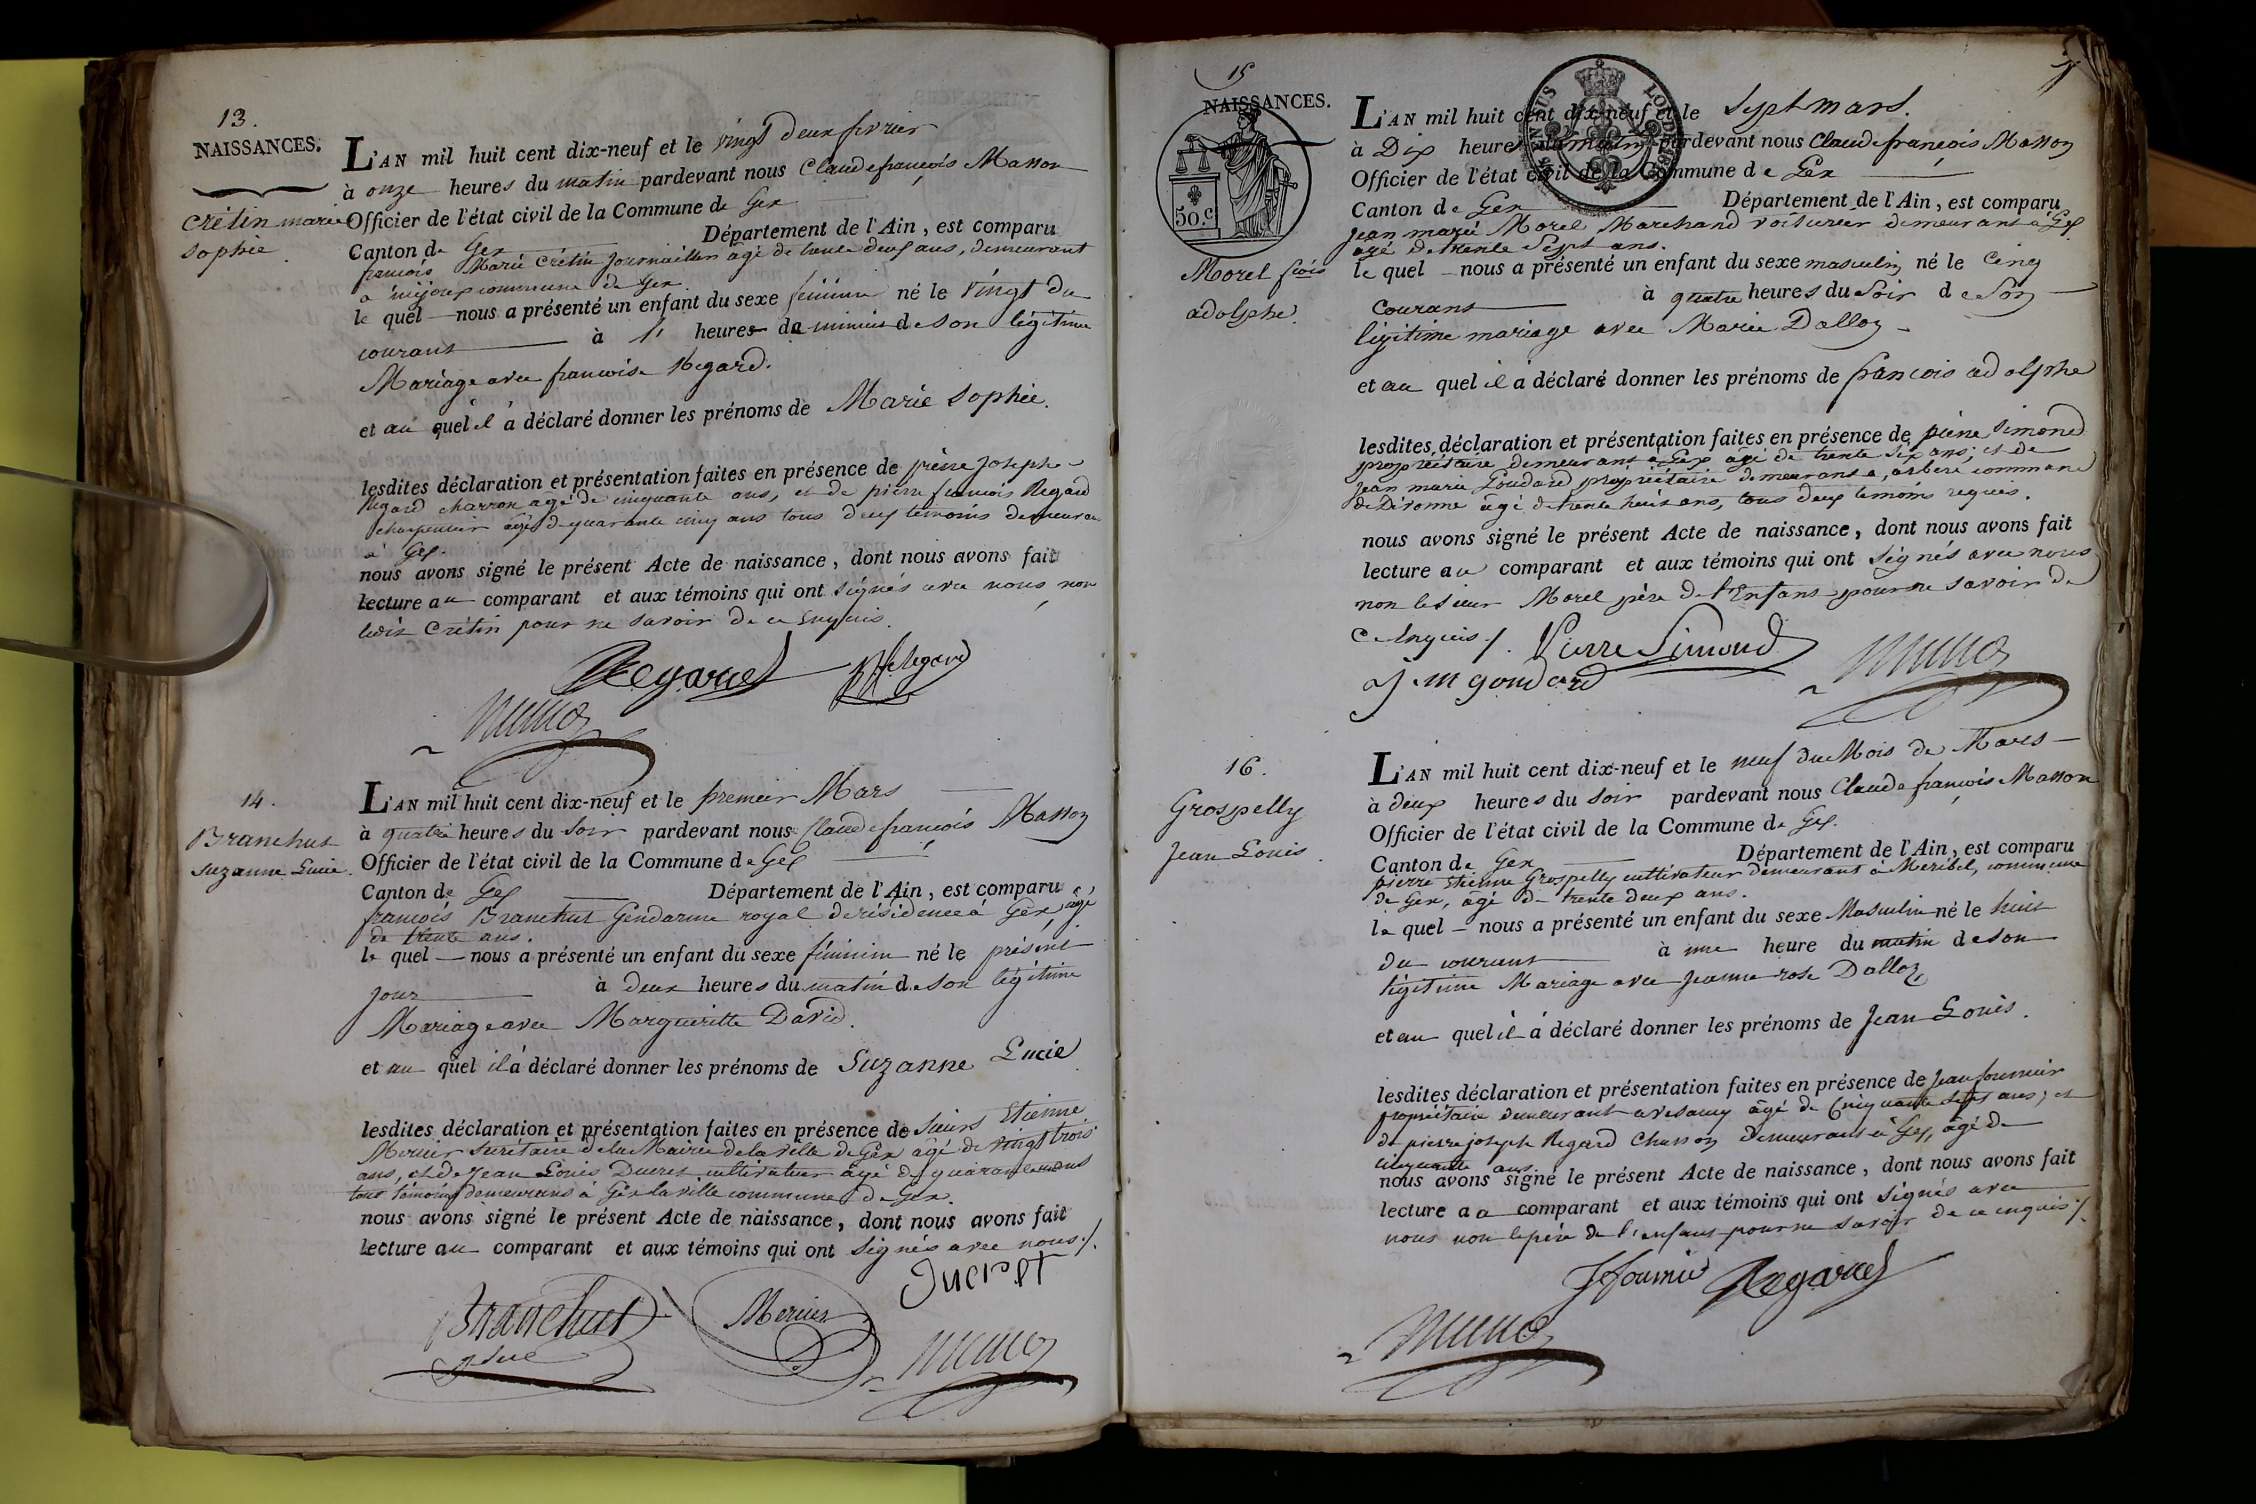 13.
NAISSANCES.
Crétin marie
Sophie.
L'AN mil huit cent dix-neuf et le vingt deux fevrier
à onze heures du matin pardevant nous Claude françois Masson
Officier de l'état civil de la Commune de Gex
Canton de Gex Département de l'Ain, est comparu
françois Marie Crétin Journaillier âgé de trente deux ans, demeurant
a mijoux commune de Gex
le quel nous a présenté un enfant du sexe féminin né le vingt du
courant à heures de minuit de son légitime
Mariage avec francoise Regard.
et au quel il a déclaré donner les prénoms de Marie Sophie.
lesdites déclaration et présentation faites en présence de pierre Joseph
Regard charron agé de cinquante ans, et de pierre francois Regard
charpentier âgé de quarante cinq ans tous deux témoins demeurant
a Gex.
nous avons signé le présent Acte de naissance, dont nous avons fait
lecture au comparant et aux témoins qui ont signés avec nous, non
ledit Crétin pour ne savoir de ce Enquis.
Regard Regard
14.
Branchut
Suzanne Lucie.
L'AN mil huit cent dix-neuf et le premier Mars
à quatre heures du soir pardevant nous Claude françois Masson
Officier de l'état civil de la Commune de Gex
Canton de Gex Département de l'Ain, est comparu
françois Branchut Gendarme royal de résidence à Gex, âgé
de trente ans.
le quel nous a présenté un enfant du sexe féminin né le présent
jour à deux heures du matin de son légitime
Mariage avec Margueritte David.
et au quel il a déclaré donner les prénoms de Suzanne Lucie
lesdites déclaration et présentation faites en présence de Sieurs Etienne
Mercier Secrétaire de la Mairie de la ville de Gex âgé de vingt trois
ans, et de Jean Louis Ducret cultivateur âgé de quarante ans
tous témoins demeurans à Gex la ville commune de Gex.
nous avons signé le présent Acte de naissance, dont nous avons fait
lecture au comparant et aux témoins qui ont signés avec nous./.
Ducret
Branchut Mercier
15
NAISSANCES.
50.c
Morel fcois
adolphe.
L'AN mil huit cent dix-neuf et le Sept mars.
à Dix heures du matin pardevant nous Claude françois Masson
Officier de l'état civil de la Commune de Gex
Canton de Gex Département de l'Ain, est comparu
Jean marie Morel Marchand voiturier demeurant à Gex
âgé de trente Sept ans.
le quel nous a présenté un enfant du sexe masculin né le Cinq
Courant à quatre heures du Soir de Son
légitime mariage avec Marie Dalloz
et au quel il a déclaré donner les prénoms de françois adolphe
lesdites déclaration et présentation faites en présence de pierre Simond
propriétaire demeurant a Gex âgé de trente six ans, et de
Jean marie Goudard propriétaire demeurant a, arbere commune
de Divonne âgé de trente huit ans, tous deux témoins requis.
nous avons signé le présent Acte de naissance, dont nous avons fait
lecture au comparant et aux témoins qui ont signés avec nous
non le Sieur Morel père de l'Enfant pour ne savoir de
Ce Enquis./. Pierre Simond
J. m goudard
16.
Grospelly
Jean Louis.
L'AN mil huit cent dix-neuf et le neuf du Mois de Mars
à deux heures du soir pardevant nous Claude françois Masson
Officier de l'état civil de la Commune de Gex.
Canton de Gex Département de l'Ain, est comparu
pierre Etienne Grospelly cultivateur demeurant à Meribel, commune
de Gex, âgé de trente deux ans.
le quel nous a présenté un enfant du sexe Masculin né le huit
du courant à une heure du matin de son
légitime Mariage avec Jeanne rose Dalloz
et au quel il a déclaré donner les prénoms de Jean Louis.
lesdites déclaration et présentation faites en présence de Jean fournier
propriétaire demeurant a vesancy âgé de Cinquante Sept ans; et
de pierre joseph Regard Charron demeurant à Gex, âgé de
cinquante ans
nous avons signé le présent Acte de naissance, dont nous avons fait
lecture au comparant et aux témoins qui ont signés avec
nous non le père de l'enfant pour ne savoir de ce enquis./.
Jfournier Regard